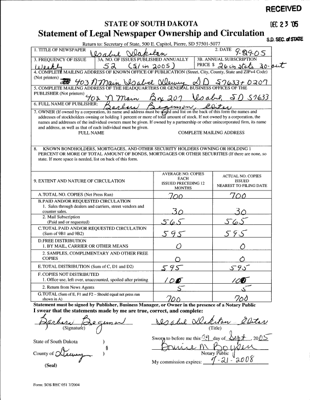 RECEIVED
DEC 23 '05
S.D. SEC. of STATE
STATE OF SOUTH DAKOTA
Statement of Legal Newspaper Ownership and Circulation
Return to: Secretary of State, 500 E. Capitol, Pierre, SD 57501-5077
1. TITLE OF NEWSPAPER Isabel Dakotan
2. DATE
3. FREQUENCY OF ISSUE Weekly
3A. NO. OF ISSUES PUBLISHED ANNUALLY 52 (51 in 2005)
3B. ANNUAL SUBSCRIPTION PRICE $ 26 in state 30 out
4. COMPLETE MAILING ADDRESS OF KNOWN OFFICE OF PUBLICATION (Street, City, County, State and ZIP+4 Code)
(Not printers) 403 N Main Isabel Dewey SD 57633-0207
5. COMPLETE MAILING ADDRESS OF THE HEADQUARTERS OR GENERAL BUSINESS OFFICES OF THE
PUBLISHER (Not printers) 403 N Main Box 207 Isabel SD 57633
6. FULL NAME OF PUBLISHER: Barbara Begeman
7. OWNER (If owned by a corporation, its name and address must be stated and also immediately thereunder the names and
addresses of stockholders owning or holding 1 percent or more of total amount of stock. If not owned by a corporation, the
names and addresses of the individual owners must be given. If owned by a partnership or other unincorporated firm, its name
and address, as well as that of each individual must be given.
FULL NAME COMPLETE MAILING ADDRESS
8. KNOWN BONDHOLDERS, MORTGAGES, AND OTHER SECURITY HOLDERS OWNING OR HOLDING 1
PERCENT OR MORE OF TOTAL AMOUNT OF BONDS, MORTGAGES OR OTHER SECURITIES (If there are none, so
state. If more space is needed, list on back of this form.
9. EXTENT AND NATURE OF CIRCULATION
AVERAGE NO. COPIES EACH ISSUED PRECEDING 12 MONTHS
ACTUAL NO. COPIES ISSUED NEAREST TO FILING DATE
A. TOTAL NO. COPIES (Net Press Run) 700 700
B. PAID AND/OR REQUESTED CIRCULATION
1. Sales through dealers and carriers, street vendors and counter sales. 30 30
2. Mail Subscription (Paid and or requested) 565 565
C. TOTAL PAID AND/OR REQUESTED CIRCULATION (Sum of 9B1 and 9B2) 595 595
D. FREE DISTRIBUTION
1. BY MAIL, CARRIER OR OTHER MEANS 0 0
2. SAMPLES, COMPLIMENTARY AND OTHER FREE COPIES 0 0
E. TOTAL DISTRIBUTION (Sum of C, D1 and D2) 595 595
F. COPIES NOT DISTRIBUTED
1. Office use, left over, unaccounted, spoiled after printing 100 100
2. Return from News Agents 5 5
G. TOTAL (Sum of E, F1 and F2 - Should equal net press run shown in A) 700 700
Statement must be signed by Publisher, Business Manager, or Owner in the presence of a Notary Public
I swear that the statements made by me are true, correct, and complete:
Barbara Begeman
(Signature)
(Title)
State of South Dakota )
County of Dewey )
(Seal)
Sworn to before me this 29 day of Sept, 2005
Denise M
Notary Public
My commission expires: 7-21-2008
Form: SOS REC 051 7/2004